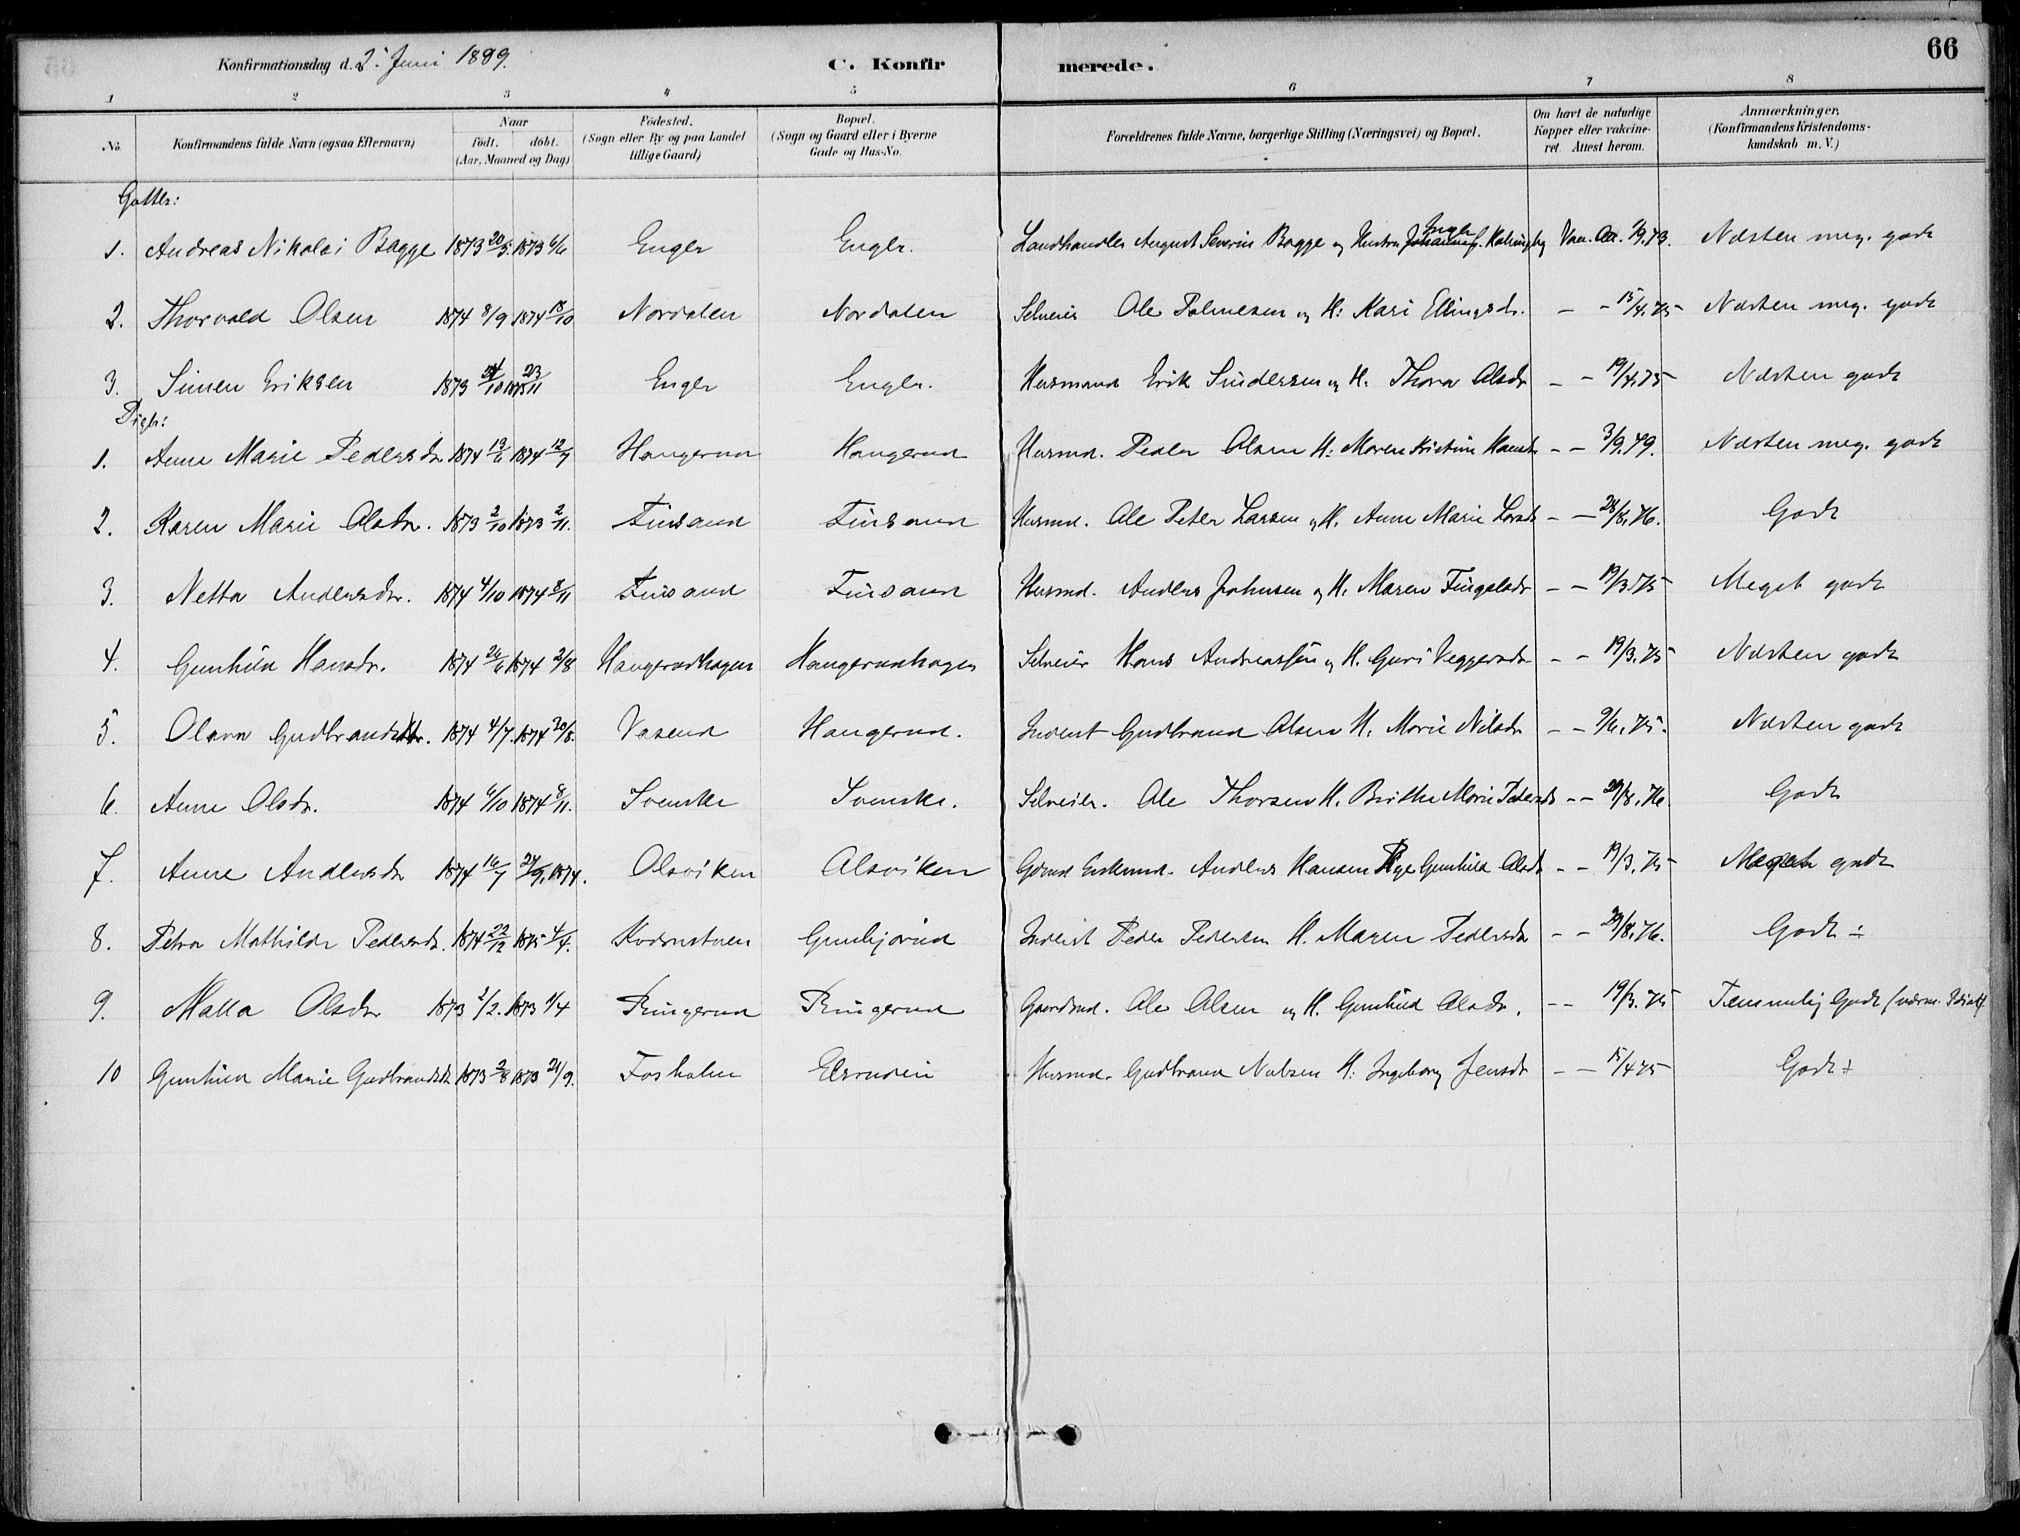 66
Konfirmationsdag d. 2. Juni 1889.
C. Konfirmerede.
1 2 3 4 5 6 7 8
No. Konfirmandens fulde Navn (ogsaa Efternavn) Naar födt. döbt. (Aar, Maaned og Dag) Födested. (Sogn eller By og paa Landet tillige Gaard) Bopæl. (Sogn og Gaard eller i Byerne Gade og Hus-No. Forældrenes fulde Navne, borgerlige Stilling (Næringsvei) og Bopæl. Om havt de naturlige Kopper eller vakcineret. Attest herom. Anmærkninger, (Konfirmandens Kristendomskundskab m. V.)
Gutter:
1. Andreas Nikolai Bagge 1873 20/5. 1873 6/6 Enger Enger. Landhandler August Severin Bagge og Hustru Vac. 1/9.73. Næsten meg. godt
2. Thorvald Olsen 1874 8/9 1874 18/10 Nordalen Nordalen Selveier Ole Palmesen og H: Kari Ellingsdr. – – 15/4.75 Næsten meg. godt
3. Simen Eriksen 1873 /10 1873 23/11 Enger Enger. Husmand Erik Sindersen og H. Thora Olsdr – – 19/4.75 Næsten godt
Piger:
1. Anne Marie Pedersdr 1874 13/6 1874 12/7 Haugerud Haugerud Husmd. Peder Olsen H: Maren Kristine Hansdr – – 3/9.79. Næsten meg. godt
2. Karen Marie Olsdr. 1873 2/10 1873 2/11. Finsand Finsand Husmd. Ole Peter Larsen og H. Anne Marie Larsdr – – 28/8.76. Godt
3. Netta Andersdr. 1874 4/10 1874 8/11 Finsand Finsand Husmd. Anders Johnsen og H. Maren Fingalsdr – – 19/3.75 Meget godt
4. Gunhild Hansdr. 1874 26/6 1874 2/8 Haugerudhagen Haugerudhagen Selveier Hans Andreassen og H. Guri Veggersdr – – 19/3.75 Næsten godt
5. Olava Gudbrandsdr. 1874 4/7. 1874 30/8. Vasend Haugerud. Inderst Gudbrand Olsen H. Marie Nilsdr – – 9/6.75. Næsten godt
6. Anne Olsdr. 1874 6/10 1874 8/11. Svenske Svenske. Selveier. Ole Thorsen H. Birthe Marie Pedersdr – – 29/8.76. Godt
7. Anne Andersdr 1874 16/7 27/9, 1874. Olsviken Olsviken Gdmd Enkemd. Anders Hansen Pige Gunhild Olsdr – – 19/3.75 Meget godt
8. Petra Mathilde Pedersdr. 1874 22/12 1875 4/4. Kvernstuen Gunbjørud Inderst Peder Pedersen H. Maren Pedersdr – – 29/8.76. Godt ÷
9. Malla Olsdr 1873 2/2. 1873 1/4 Ringerud Ringerud Gaardmd. Ole Olsen og H. Gunhild Olsdr. – – 19/3.75 Temmelig Godt
10 Gunhild Marie Gudbrandsdr 1873 2/8 1873 21/9. Fosholm Elsrudei Husmd. Gudbrand Nubsen H: Ingeborg Jensdr – – 15/4 75 Godt ÷